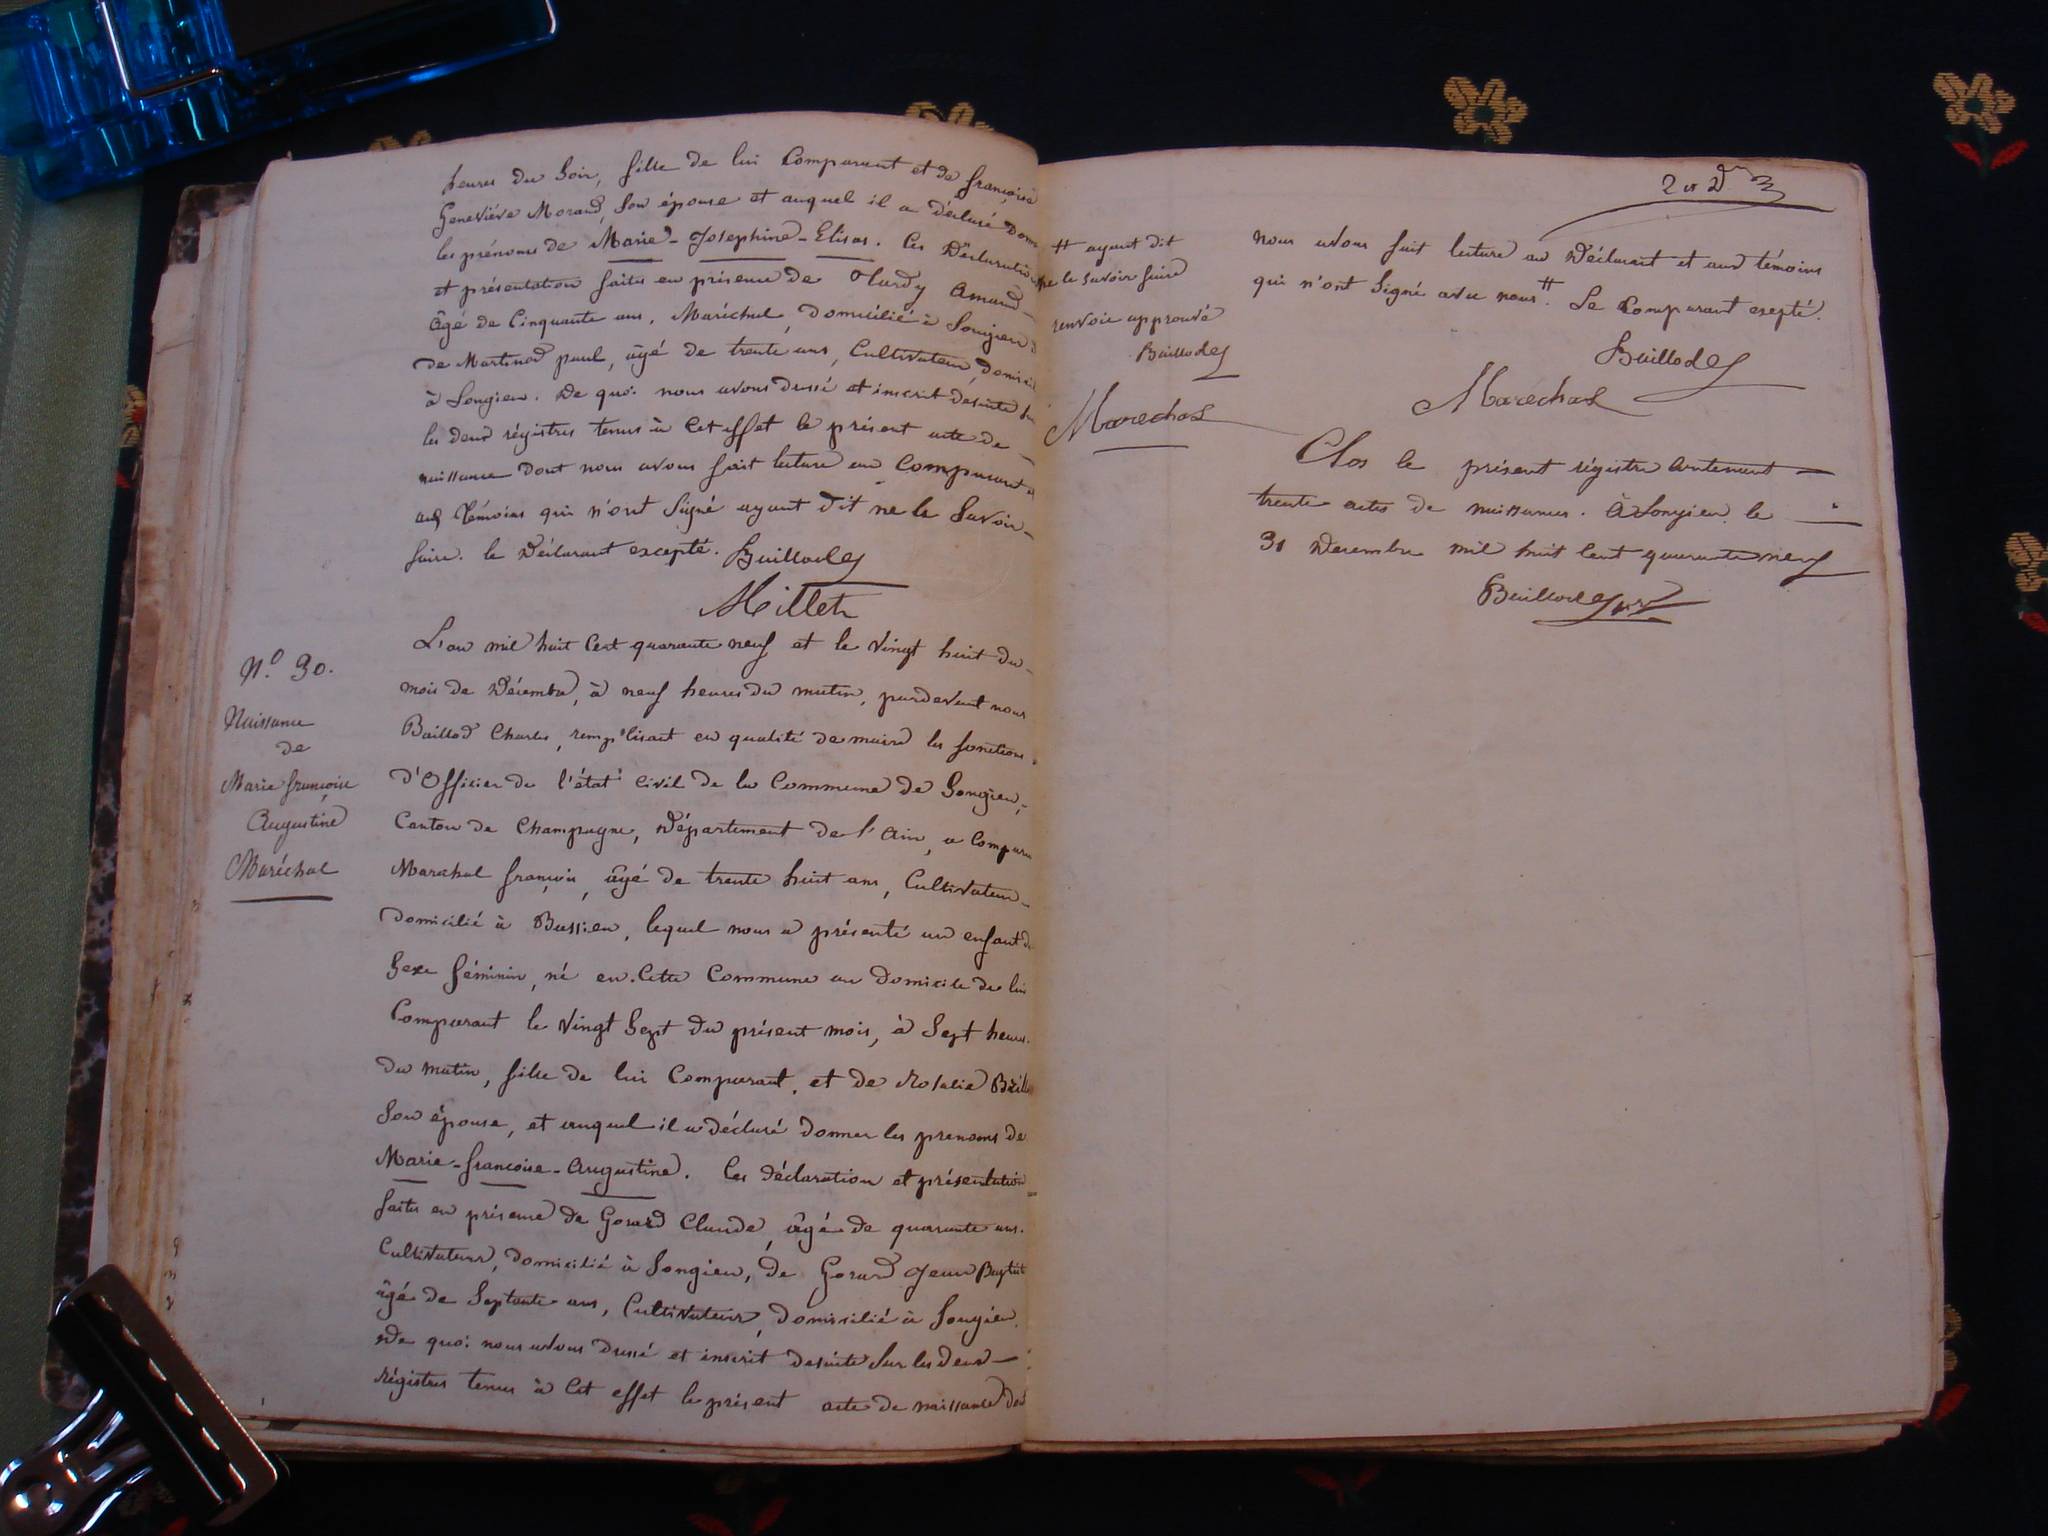 heures du Soir, fille de lui Comparant et de françoise
Geneviève Morand, Son épouse et auquel il a déclaré donner
les prénoms de Marie-Josephine-Elisa. Ces Déclaration
et présentation faites en présence de Amand
âgé de Cinquante ans, Maréchal, domicilié à Songieu
de Martinod paul, âgé de trente ans, Cultivateur, domicilié
à Songieu. De quoi nous avons dressé et inscrit desuite sur
les deux régistres tenus à Cet effet le présent acte de
naissance dont nous avons fait lecture au Comparant et
aux témoins qui n'ont Signé ayant dit ne le Savoir
faire. le Déclarant excepté. Baillod
Millet
N.º 30.
Naissance
de
Marie françoise
Augustine
Maréchal
L'an mil huit Cent quarante neuf et le Vingt huit du
mois de Décembre, à neuf heures du matin, pardevant nous
Baillod Charles, remplisant en qualité de maire les fonctions
d'Officier de l'état Civil de la Commune de Songieu,
Canton de Champagne, Département de l'Ain, a Comparu
Marechal françois, âgé de trente huit ans, Cultivateur
domicilié à Bassieu, lequel nous a présenté un enfant du
Sexe féminin, né en Cette Commune au domicile de lui
Comparant le Vingt Sept du présent mois, à Sept heures
du matin, fille de lui Comparant, et de Rosalie
Son épouse, et auquel il a déclaré donner les prenoms de
Marie-francoise-Augustine. Ces déclaration et présentation
faites en présence de Gorard Claude, âgé de quarante ans.
Cultivateur, domicilié à Songieu, de Gorard Jean Baptiste
âgé de Septante ans, Cultivateur, domicilié à Songieu.
De quoi nous avons dressé et inscrit desuite Sur les deux
régistres tenus à Cet effet le présent acte de naissance dont
nous avons fait lecture au Déclarant et aux témoins
qui n'ont Signé avec nous #. Le Comparant exepté.
Baillod
Marechal
# ayant dit
ne le savoir faire
renvoie approuvé
Baillod
Marechal
Clos le présent régistre Contenant
trente actes de naissances. à Songieu le
31 Decembre mil huit Cent quarante neuf
Baillod